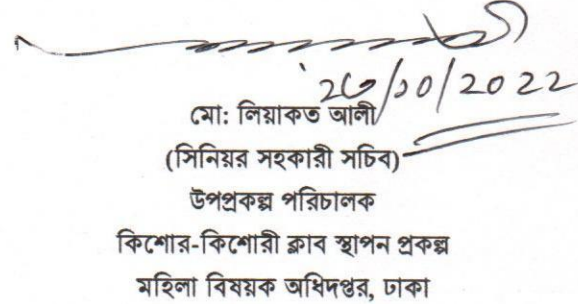 ২৬/১০/2022
মো: লিয়াকত আলী
(সিনিয়র সহকারী সচিব)
উপপ্রকল্প পরিচালক
কিশোর-কিশোরী ক্লাব স্থাপন প্রকল্প
মহিলা বিষয়ক অধিদপ্তর, ঢাকা